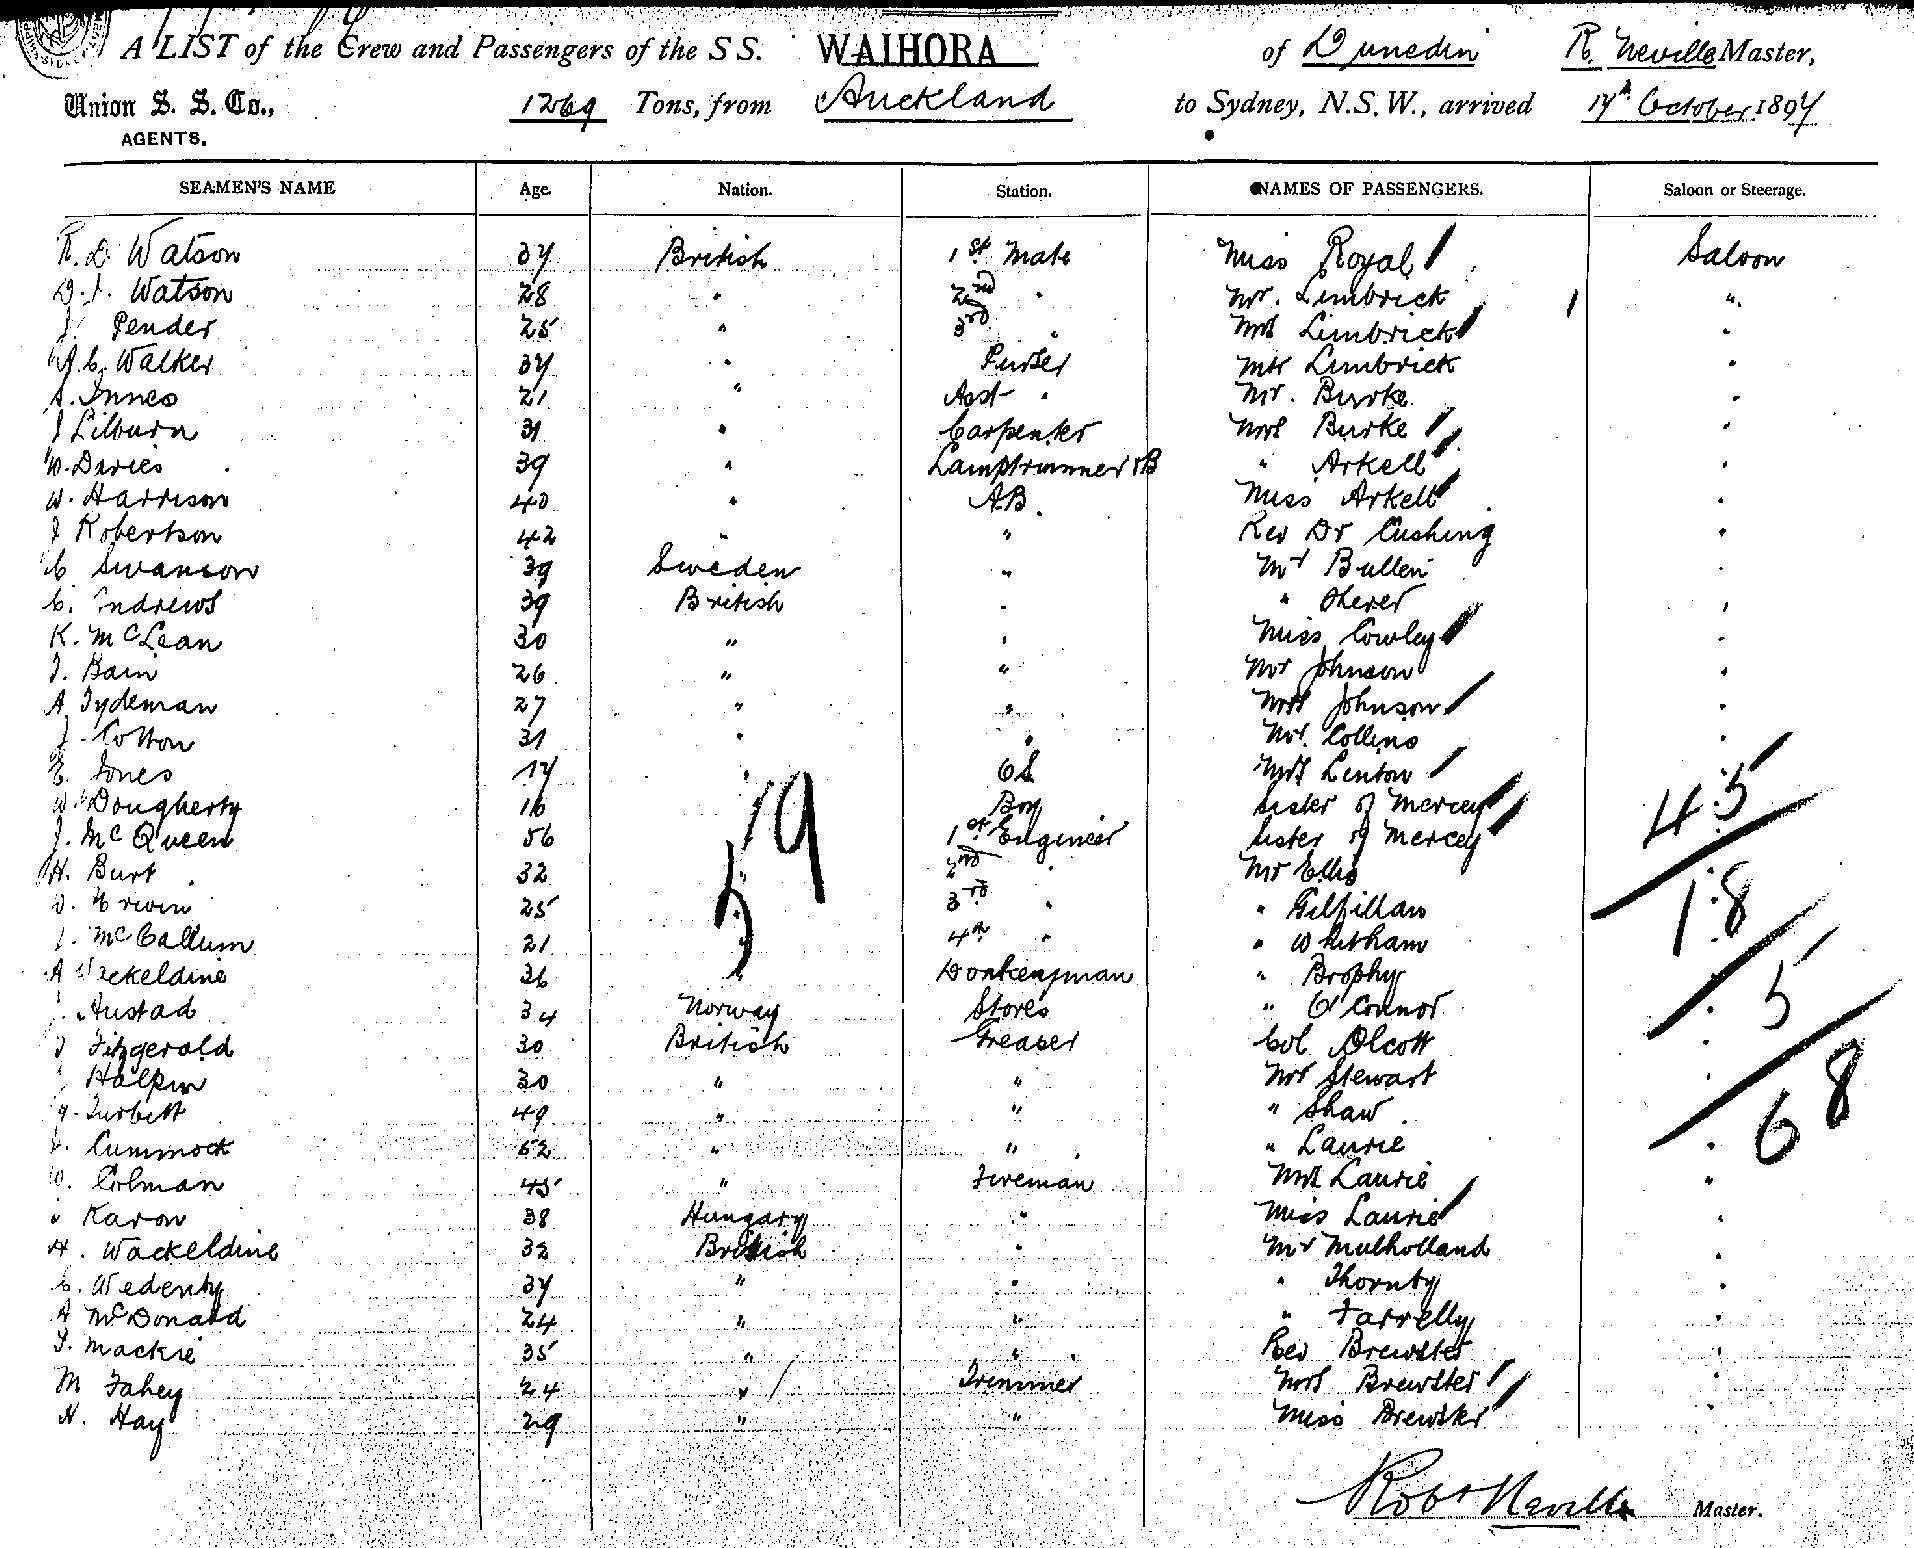 A LIST of the Crew and Passengers of the S S. WAIHORA of Dunedin R. Neville Master,
Union S. S. Co., 1269 Tons, from Auckland to Sydney, N.S.W., arrived 17th October 1897
AGENTS.
SEAMEN'S NAME Age. Nation. Station. NAMES OF PASSENGERS. Saloon or Steerage.
R. D. Watson 37 British 1st Mate Miss Royal Saloon
Watson 28 " 2nd " Mr. Limbrick "
Pender 25 " 3rd " Mrs Limbrick "
Walker 37 " Purser Limbrick "
A. Innes 21 " Asst " Mr. Burke "
J Lilburn 31 " Carpenter Mrs Burke "
W. Davies 39 " Lamptrimmer AB " Arkell "
W. Harrison 40 " A.B. Miss Arkell "
J Robertson 42 " " Rev Dr Cushing "
C Swanson 39 Sweden " Mr Bullen "
C. Andrews 39 British " " "
K. McLean 30 " " Miss Cowley "
J. Bain 26 " " Mr Johnson "
A Tydeman 27 " " Mrs Johnson "
J. Cotton 31 " " Mr. Collins "
E. Jones 17 " OS Mrs Lenton "
W Dougherty 16 Boy Sister of Mercey 45
J. McQueen 56 19 1st Engineer Sister of Mercey
H. Burt 32 " 2nd " Mr Ellis 18
Erwin 25 3rd " " Gilfillan
McCallum 21 4th " " Whitham
A Wackeldine 36 " Donkeyman " Brophy
Austad 34 Norway Stores " O'Connor 5
J Fitzgerald 30 British Greaser Col Olcott "
Halpin 30 " " Mr Stewart " 68
Turbett 49 " " " Shaw
Cummock 52 " " " Laurie "
Colman 45 " Fireman Mrs Laurie "
Karon 38 Hungary " Miss Laurie "
H. Wackeldine 32 British " Mr Mulholland "
C. Wedenby 37 " " " Thornby "
A McDonald 24 " " " Farrelly "
Mackie 35 " " Rev Brewster "
M Fahey 24 " Trimmer Mrs Brewster "
N. Hay 29 " " Miss Brewster "
Robt Neville Master.